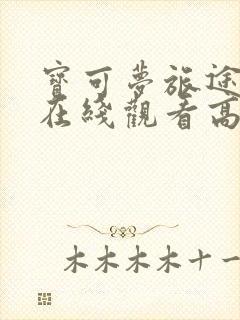 寶可夢旅途
在綫觀看高
木木木木十一